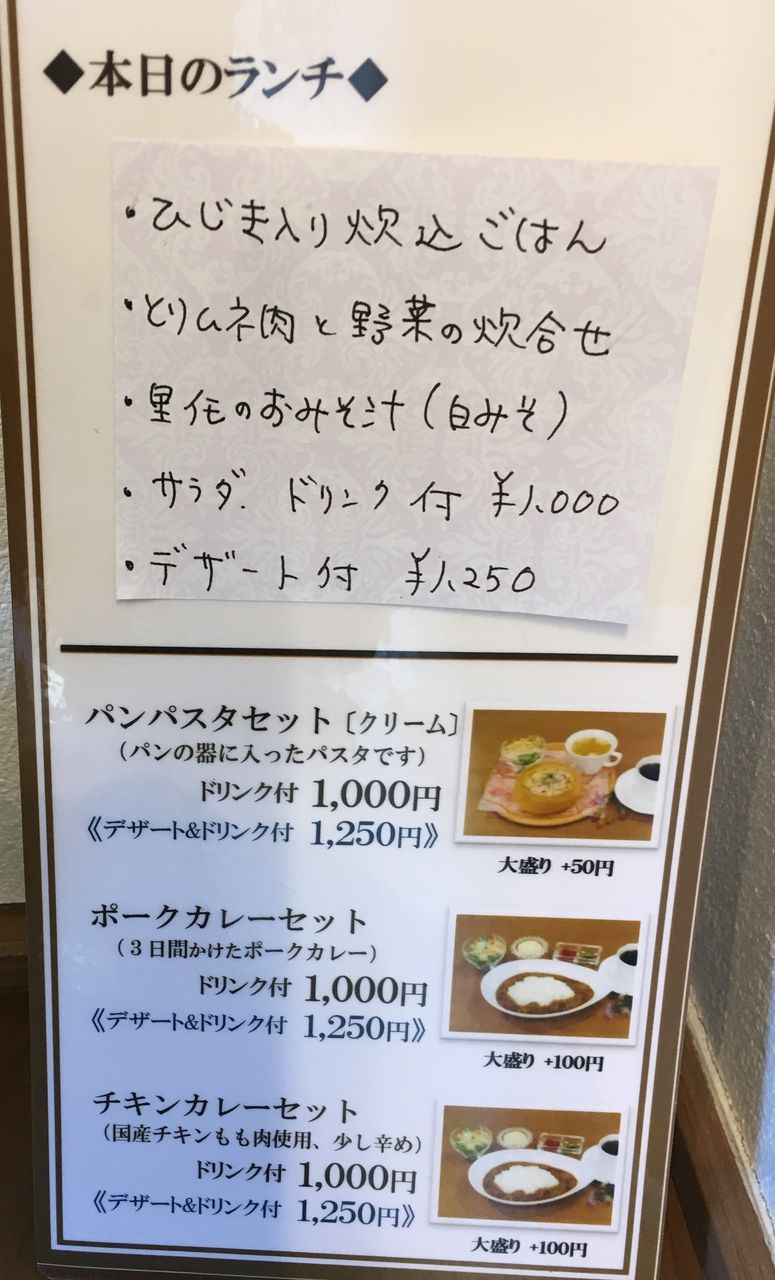 ◆本日のランチ◆
・ひじき入り炊込ごはん
・とりムネ肉と野菜の炊合せ
・里芋のおみそ汁(白みそ)
・サラダ.ドリンク付 ¥1,000
・デザート付 ¥1,250
パンパスタセット〔クリーム〕
(パンの器に入ったパスタです)
ドリンク付 1,000円
《デザート&ドリンク付 1,250円》
大盛り +50円
ポークカレーセット
(3日間かけたポークカレー)
ドリンク付 1,000円
《デザート&ドリンク付 1,250円》
大盛り +100円
チキンカレーセット
(国産チキンもも肉使用、少し辛め)
ドリンク付 1,000円
《デザート&ドリンク付 1,250円》
大盛り +100円